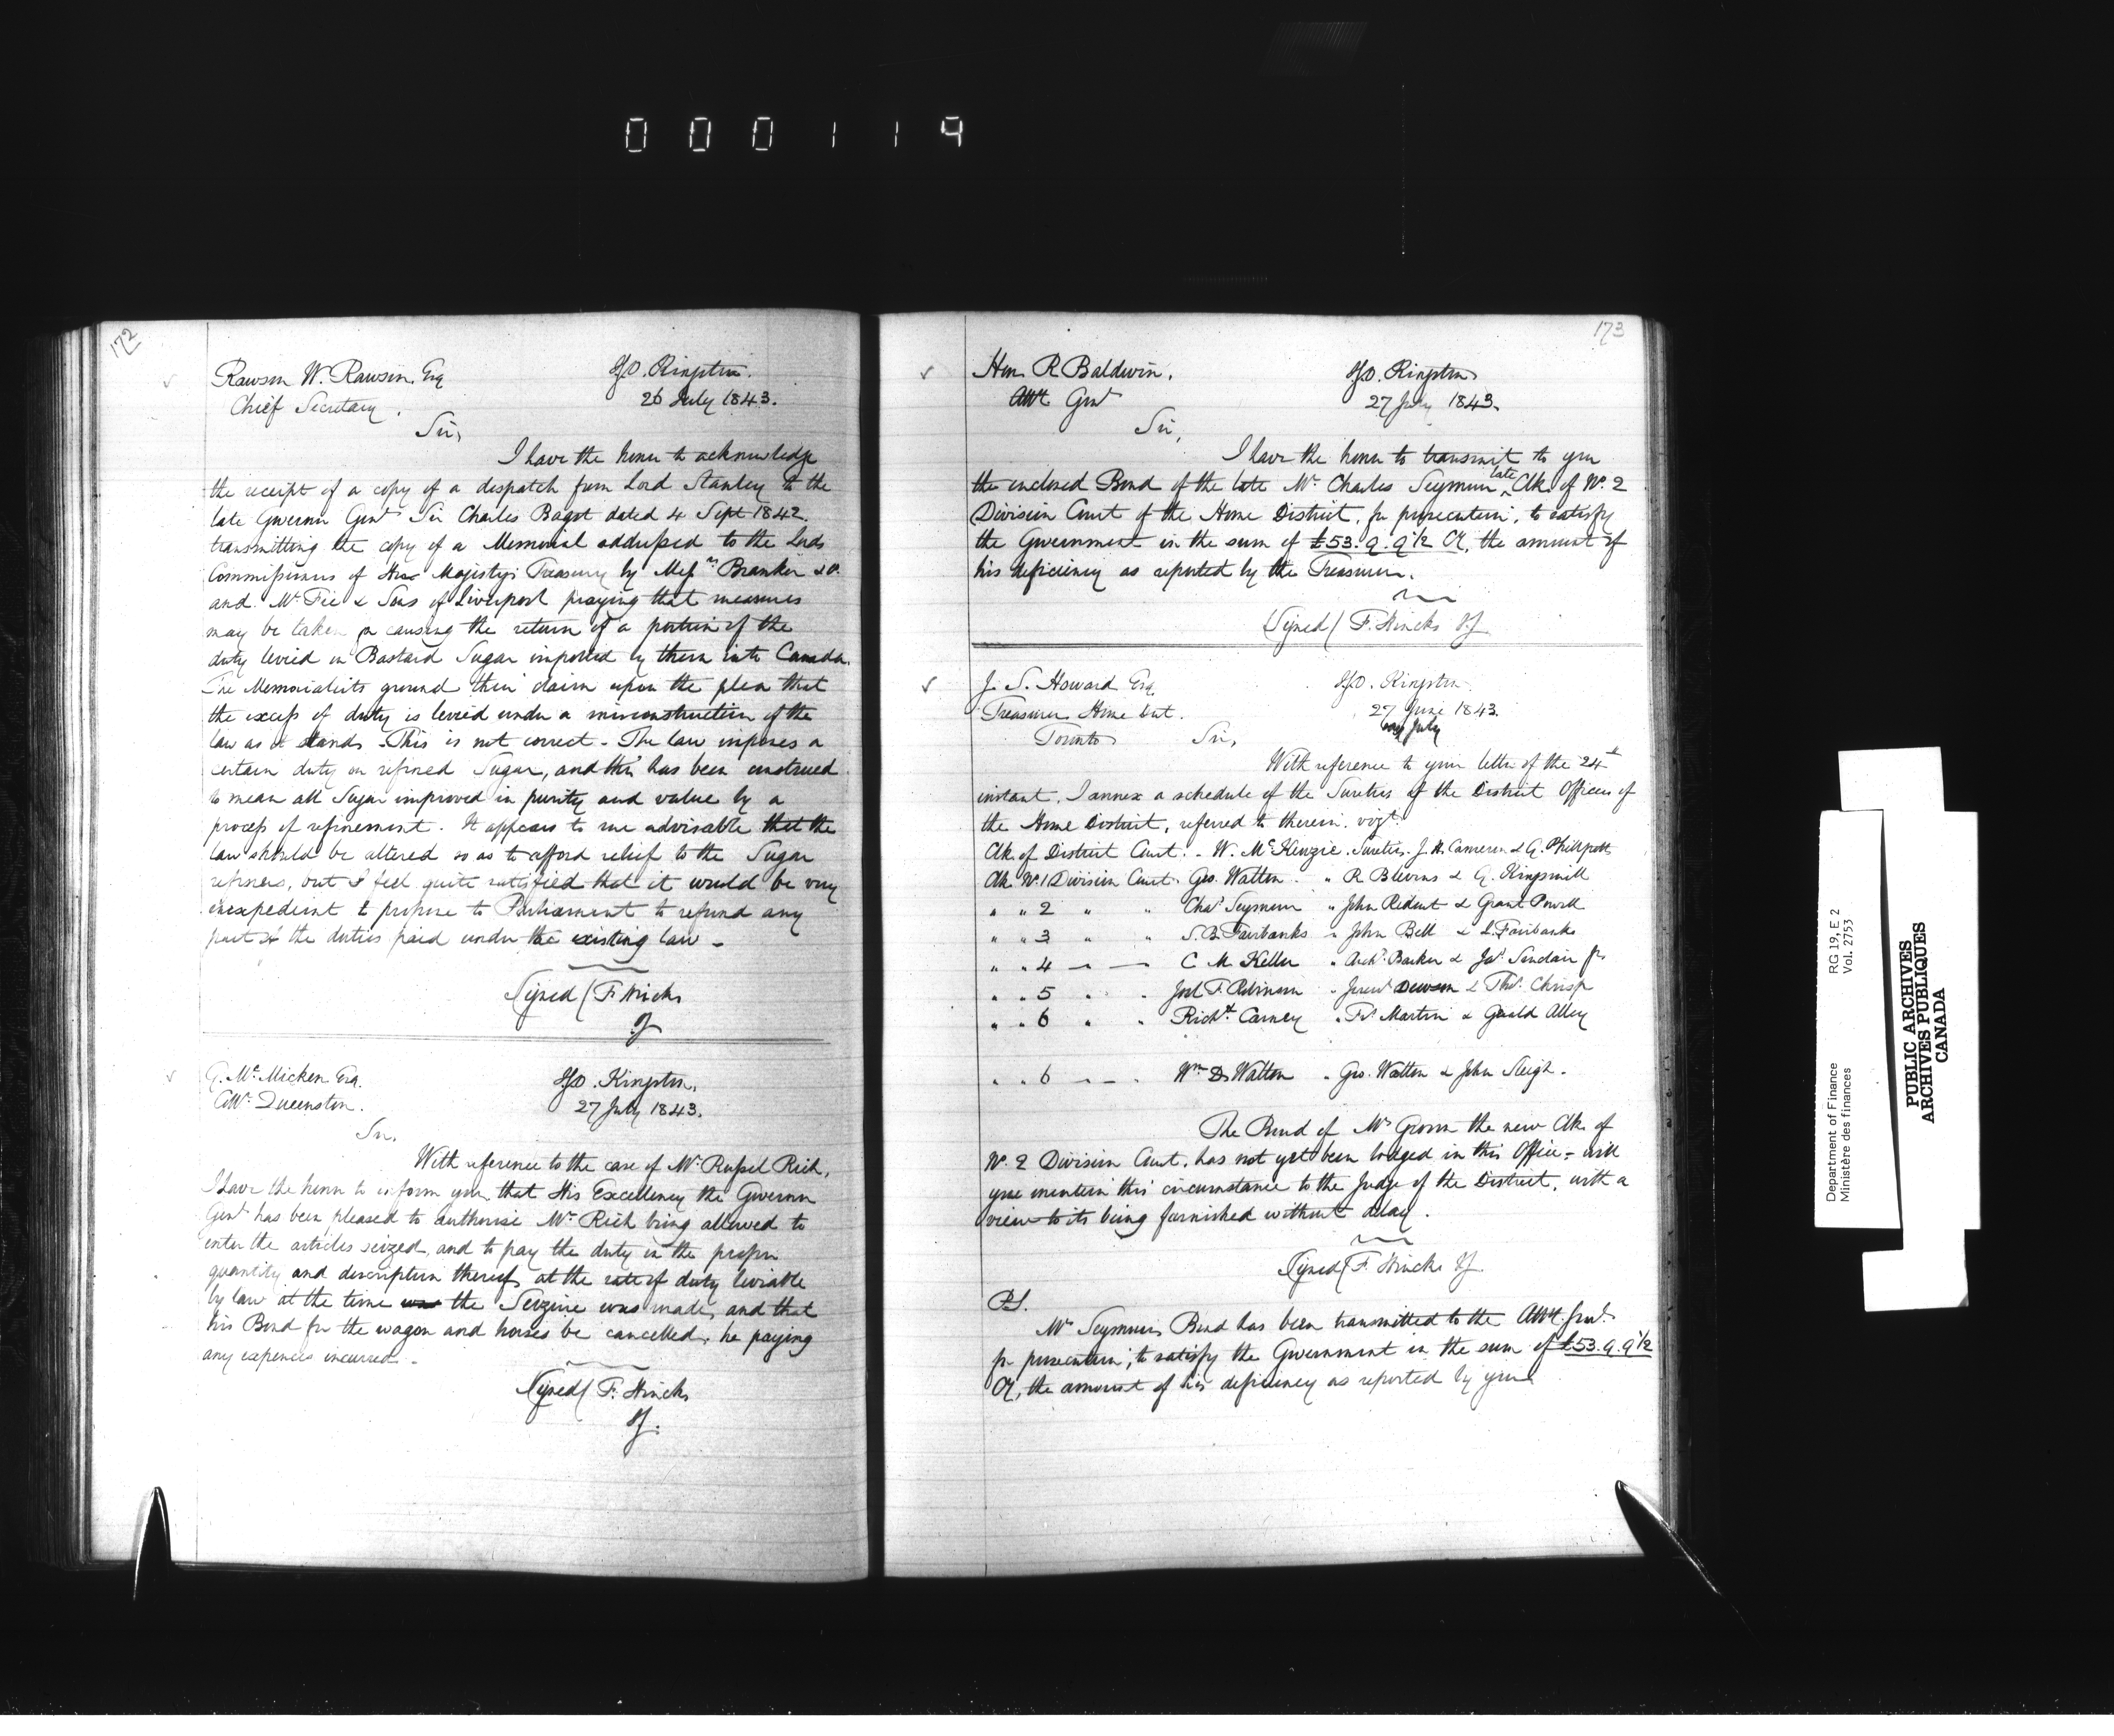 000119
172
Rawson W. Rawson Esq
Chief Secretary.
I.G.O. Kingston.
26 July 1843.
Sir,
I have the honor to acknowledge
the receipt of a copy of a dispatch from Lord Stanley to the
late Governor Genl Sir Charles Bagot dated 4 Sept 1842.
transmitting the copy of a Memorial addressed to the Lords
Commissioners of Her Majesty's Treasury by Messrs Brankin & Co.
and McFie & Sons of Liverpool praying that measures
may be taken for causing the return of a portion of the
duty levied on Bastard Sugar imported by them into Canada.
The Memorialists ground their claim upon the plea that
the excess of duty is levied under a misconstruction of the
law as it stands. This is not correct - The law imposes a
certain duty on refined Sugar, and this has been construed
to mean all Sugar improved in purity and value by a
process of refinement. It appears to me advisable that the
law should be altered so as to afford relief to the Sugar
refiners, but I feel quite satisfied that it would be very
inexpedient to propose to Parliament to refund any
part of the duties paid under the existing law -
Signed / F. Hincks
IG
G. McMicken Esq.
Collr Queenston.
I.G.O. Kingston.
27 July 1843.
Sir,
With reference to the case of Mr Russel Rich,
I have the honor to inform you, that His Excellency the Governor
Genl has been pleased to authorise Mr Rich being allowed to
enter the articles seized, and to pay the duty on the proper
quantity and description thereof, at the rate of duty leviable
by law at the time was the Seizure was made, and that
his Bond for the wagon and horses be cancelled, he paying
any expences incurred -
Signed / F. Hincks
IG.
173
Hon. R Baldwin.
Atty Genl
I.G.O. Kingston
27 July 1843.
Sir,
I have the honor to transmit to you
the enclosed Bond of the late Mr Charles Seymour late Clk. of No. 2
Division Court of the Home District, for prosecution, to satisfy
the Government in the sum of £53.9.9½ Cy, the amount of
his deficiency as reported by the Treasurer.
Signed / F. Hincks IG
J. S. Howard Esq
Treasurer Home Dist.
Toronto
I.G.O. Kingston.
27 June 1843.
July
Sir,
With reference to your letter of the 24th
instant, I annex a schedule of the Sureties of the District Officers of
the Home District, referred to therein. vizt.
Clk. of District Court. - W. McKenzie. Sureties. J. H. Cameron & G. Phillpotts
Clk No. 1 Division Court. Geo. Walton. " R Blevins & G. Kingsmill
" " 2 " " Chas Seymour " John Ridout & Grant Powell
" " 3 " " S. B. Fairbanks " John Bell & L. Fairbanks
" " 4 — — C M Keller " Archd. Barker & Jas. Sinclair jr.
" " 5 " " Joel F. Robinson " Dawson & Thos. Chrisp
" " 6 " " Richd. Carney " Fs. Martin & Gerald Alley
" " 6 " — " Wm D. Walton " Geo. Walton & John Sleigh.
The Bond of Mr Grover the new Clk. of
No. 2 Division Court, has not yet been lodged in this Office - will
you mention this circumstance to the Judge of the District, with a
view to its being furnished without delay.
Signed / F. Hincks IG.
P.S.
Mr Seymour's Bond has been transmitted to the Atty. Genl.
for prosecution, to satisfy the Government in the sum of £53.9.9½
Cy, the amount of his deficiency as reported by you
Department of Finance
Ministère des finances
RG 19, E 2
Vol. 2753
PUBLIC ARCHIVES
ARCHIVES PUBLIQUES
CANADA